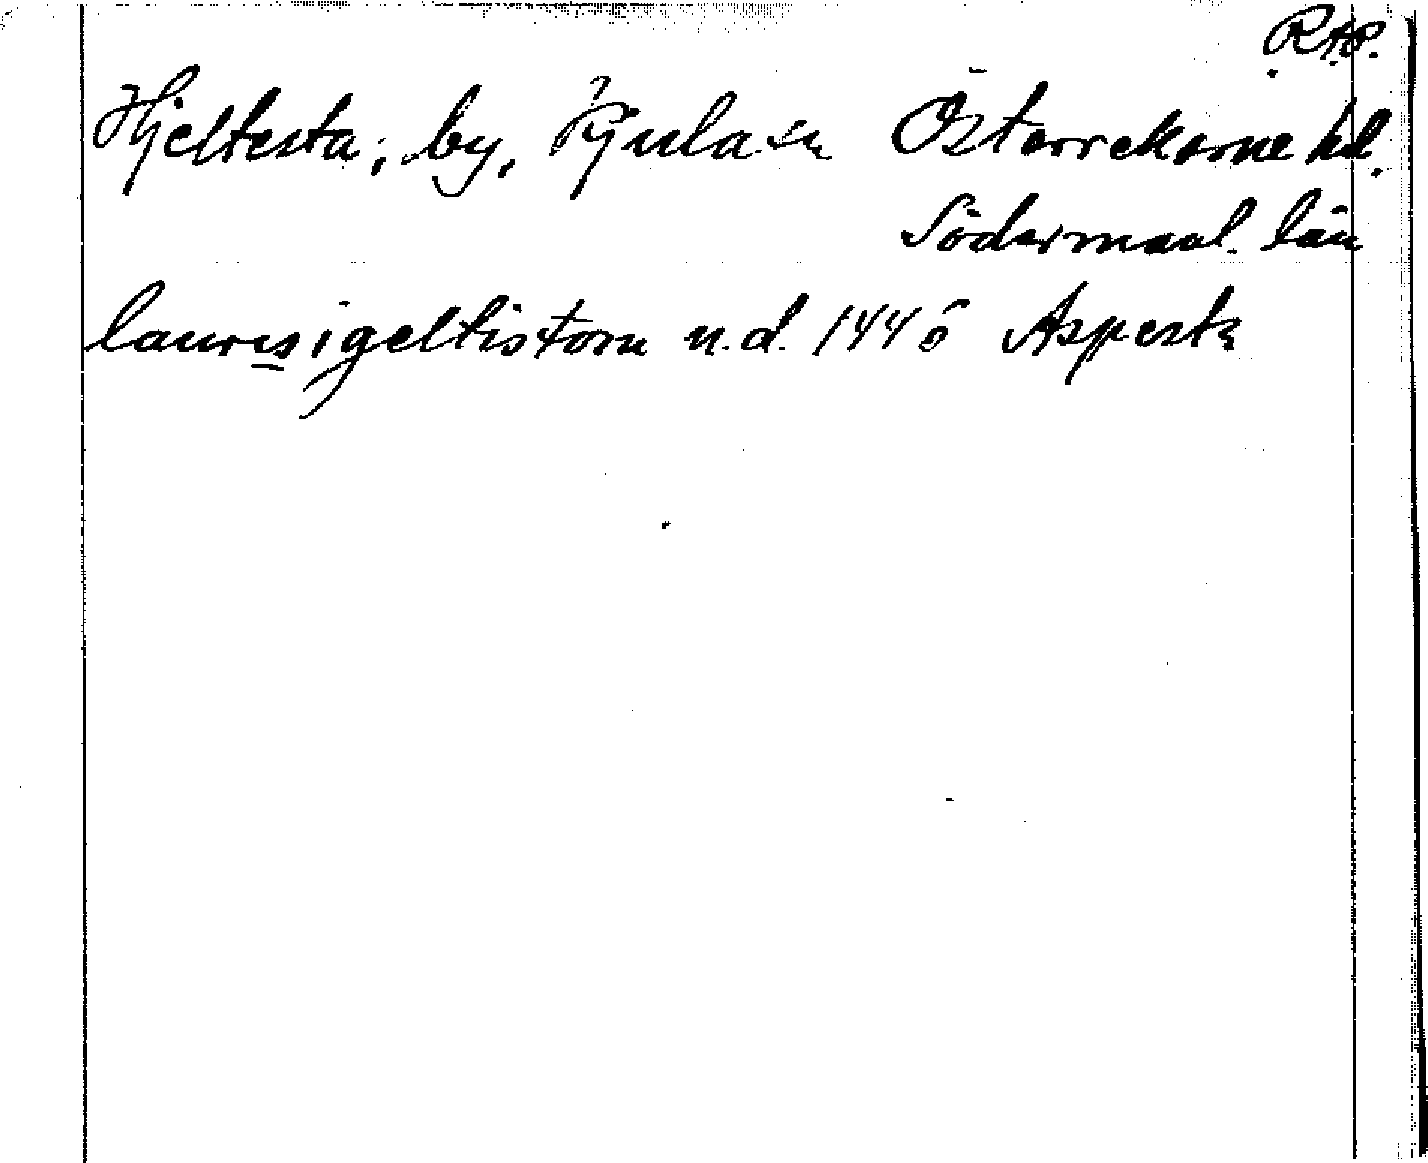 RAP.
Hjeltesta, by, Kjula sn Österrekarne hd.
Södermanl. län
laures i geltistom u.d. 1446 Aspesta